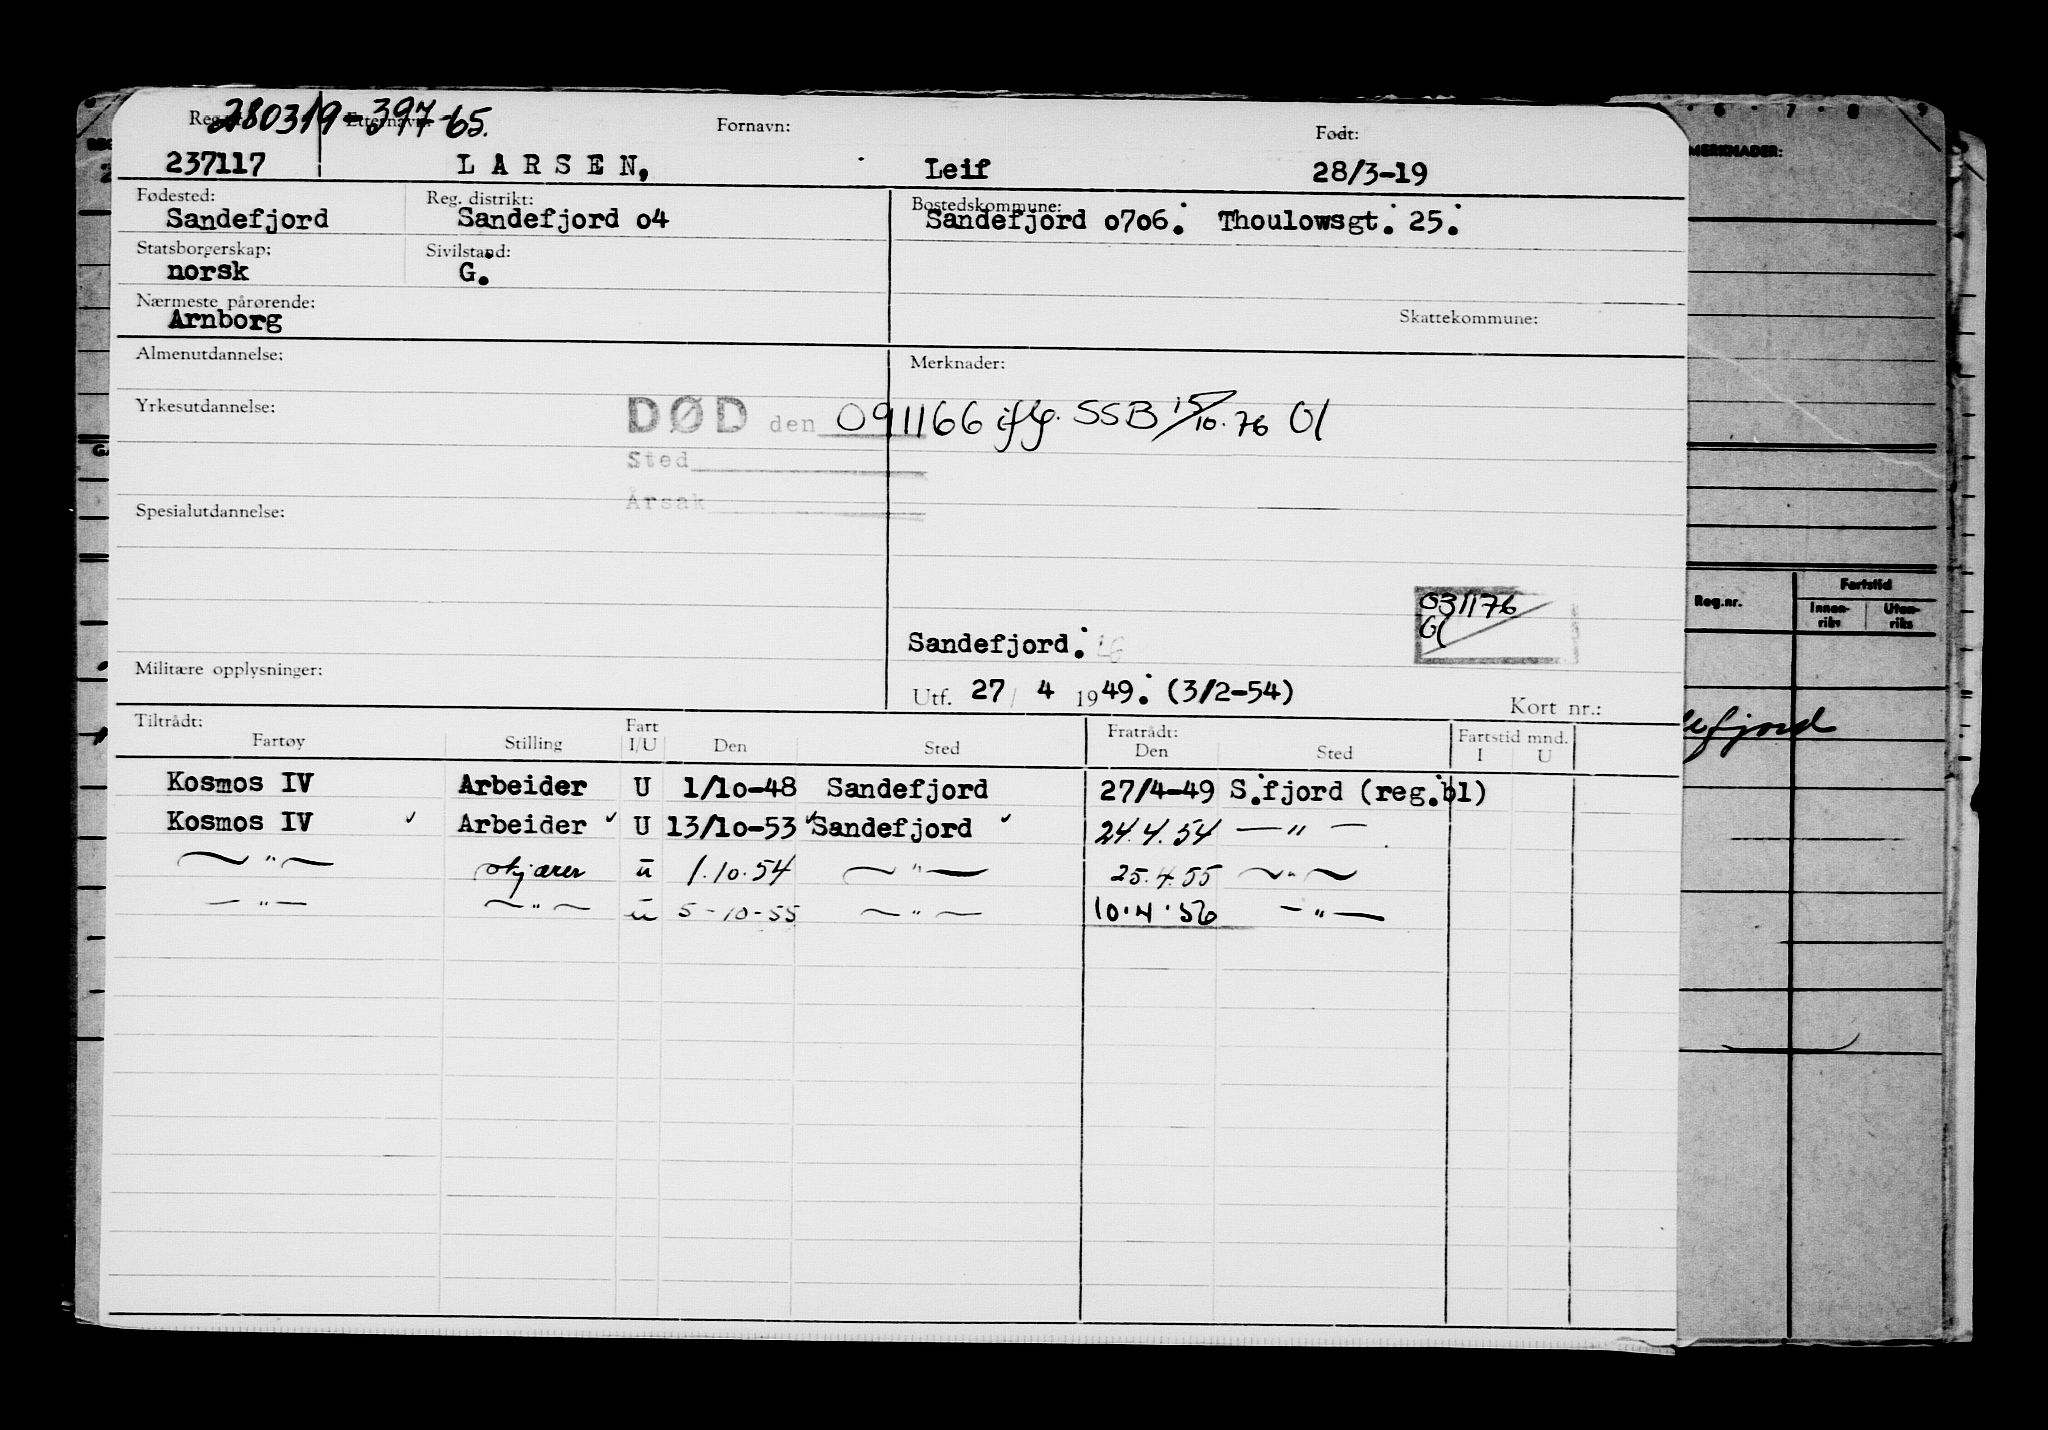 280319-397-65.
Reg.nr. Etternavn: Fornavn: Født:
237117 LARSEN, Leif 28/3-19
Fødested: Reg. distrikt: Bostedskommune:
Sandefjord Sandefjord o4 Sandefjord o7o6. Thoulowsgt. 25.
Statsborgerskap: Sivilstand:
norsk G.
Nærmeste pårørende: Skattekommune:
Arnborg
Almenutdannelse: Merknader:
Yrkesutdannelse: DØD den 091166 iflg. SSB 15/10.76 Gl
Sted
Årsak
Spesialutdannelse:
031176
Gl
Sandefjord.
Militære opplysninger:
Utf. 27/ 4 1949. (3/2-54) Kort nr.:
Tiltrådt: Fart Fratrådt: Fartstid mnd.
Fartøy Stilling I/U Den Sted Den Sted I U
Kosmos IV Arbeider U 1/1o-48 Sandefjord 27/4-49 S.fjord (reg.bl)
Kosmos IV ✓ Arbeider ✓ U 13/1o-53 ✓ Sandefjord ✓ 24.4.54 — " —
— " — skjærer u 1.10.54 — " — 25.4.55 — " —
— " — — " — u 5-10-55 — " — 10.4.56 — " —
6 7 8 9
MERKNADER:
Reg.nr. Fartstid
Innen- Uten-
riks riks
fjord